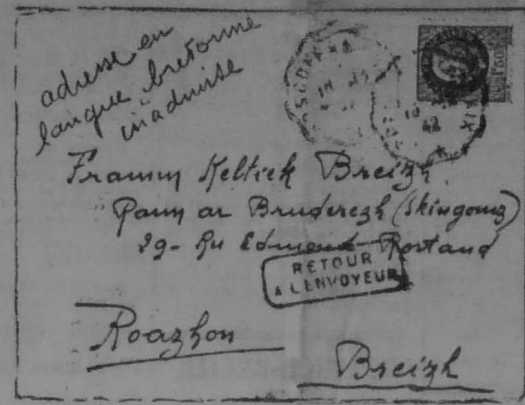 adresse en
langue bretonne
inadmise
Framm Keltiek Breizh
Penn ar Bruderezh (Skingomz)
29- Ru Edmond Rostand
RETOUR
A L'ENVOYEUR
Roazhon
Breizh